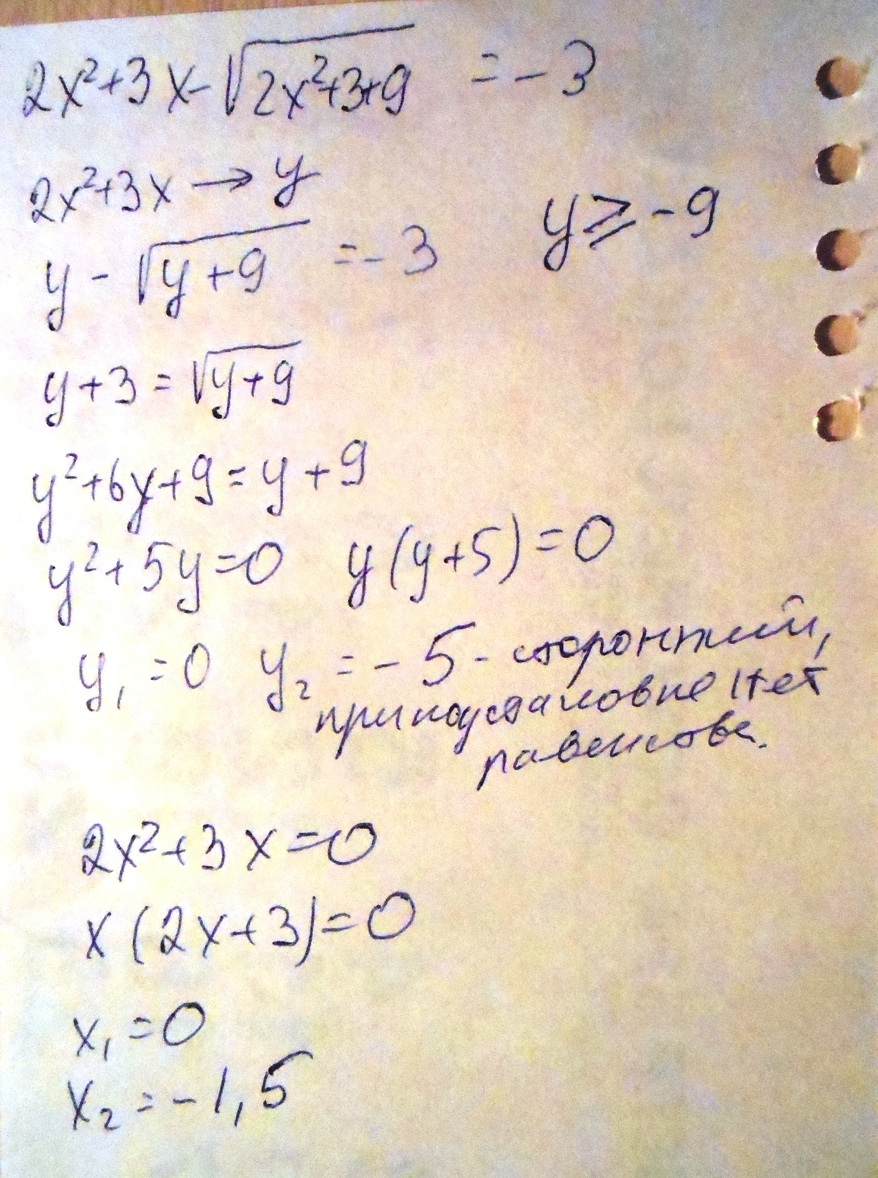 2x²+3x-√(2x²+3+9) = -3
2x²+3x → y
y - √(y+9) = -3 y ≥ -9
y+3 = √(y+9)
y²+6y+9 = y+9
y²+5y=0 y(y+5)=0
y₁=0 y₂=-5 - сторонний,
при подстановке нет
равенства.
2x²+3x=0
x(2x+3)=0
x₁=0
x₂=-1,5